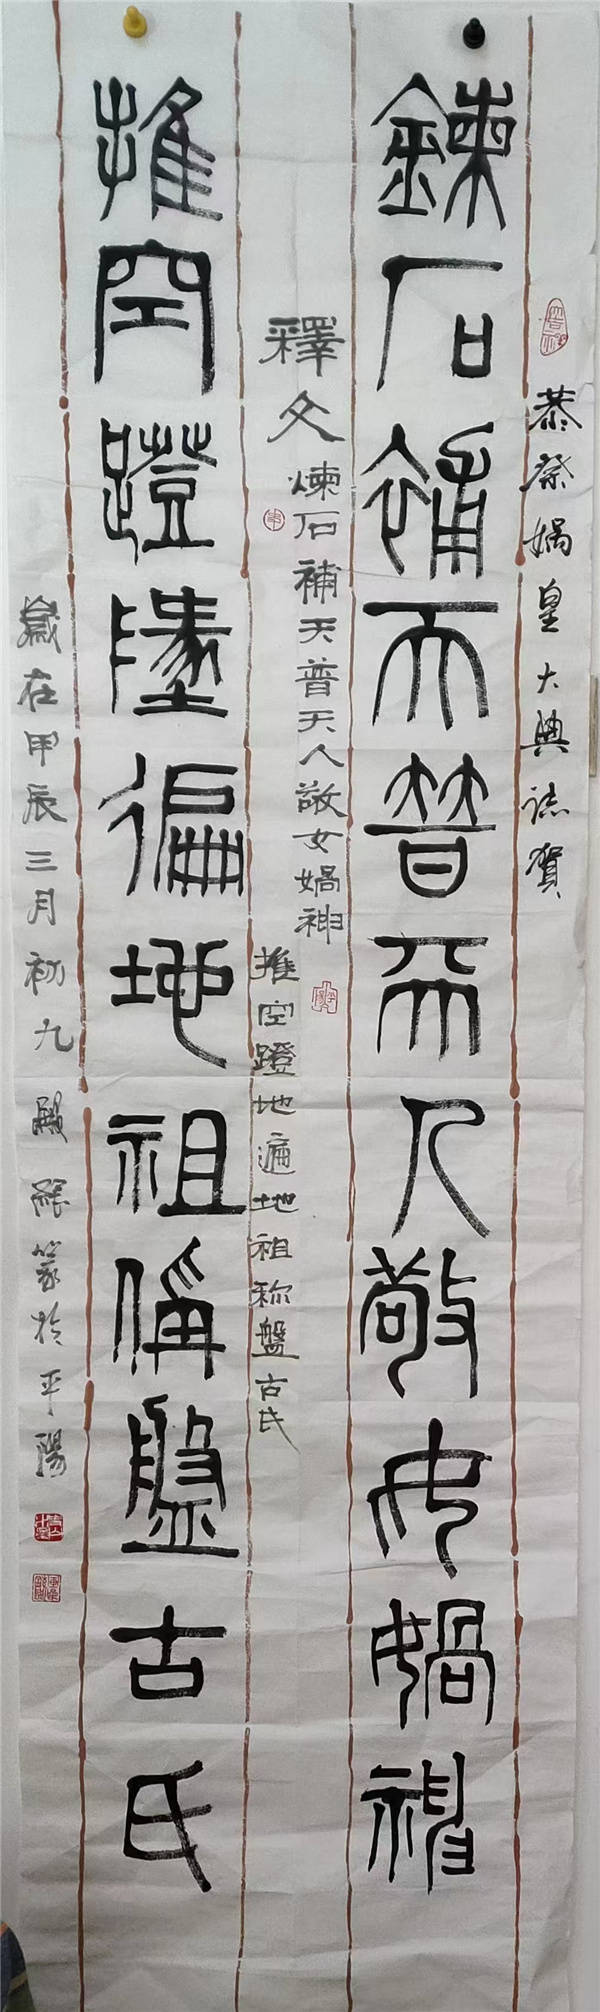 恭祭媧皇大典誌賀
鍊石補天普天人敬女媧神
釋文 煉石補天普天人敬女媧神
推空蹬地遍地祖称盤古氏
推空蹬墬徧地祖偁盤古氏
歲在甲辰三月初九 篆於平陽